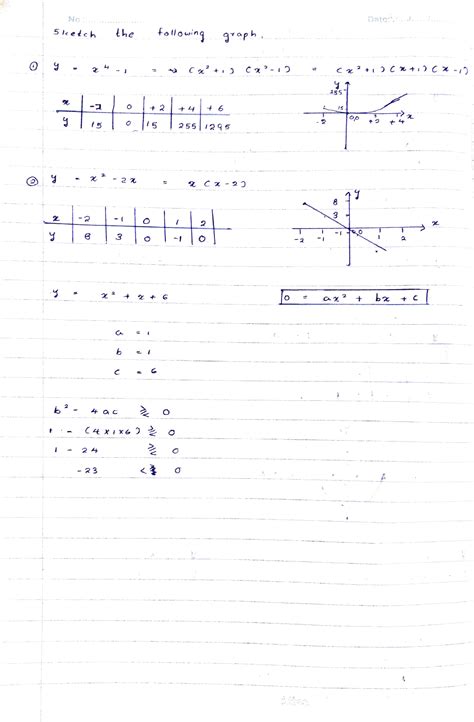 No Date
Sketch the following graph.
① y = x⁴ - 1 = → (x² + 1) (x² - 1) = (x² + 1) (x + 1) (x - 1)
x | -2 | 0 | +2 | +4 | +6
y | 15 | 0 | 15 | 255 | 1295
y 255 15 0,0 -2 +2 +4 x
② y = x² - 2x = x (x - 2)
x | -2 | -1 | 0 | 1 | 2
y | 8 | 3 | 0 | -1 | 0
y 8 3 -1 0 -2 -1 1 2 x
y = x² + x + 6 0 = ax² + bx + c
a = 1
b = 1
c = 6
b² - 4ac ⋛ 0
1 - (4x1x6) ⋛ 0
1 - 24 ⋛ 0
-23 < 0